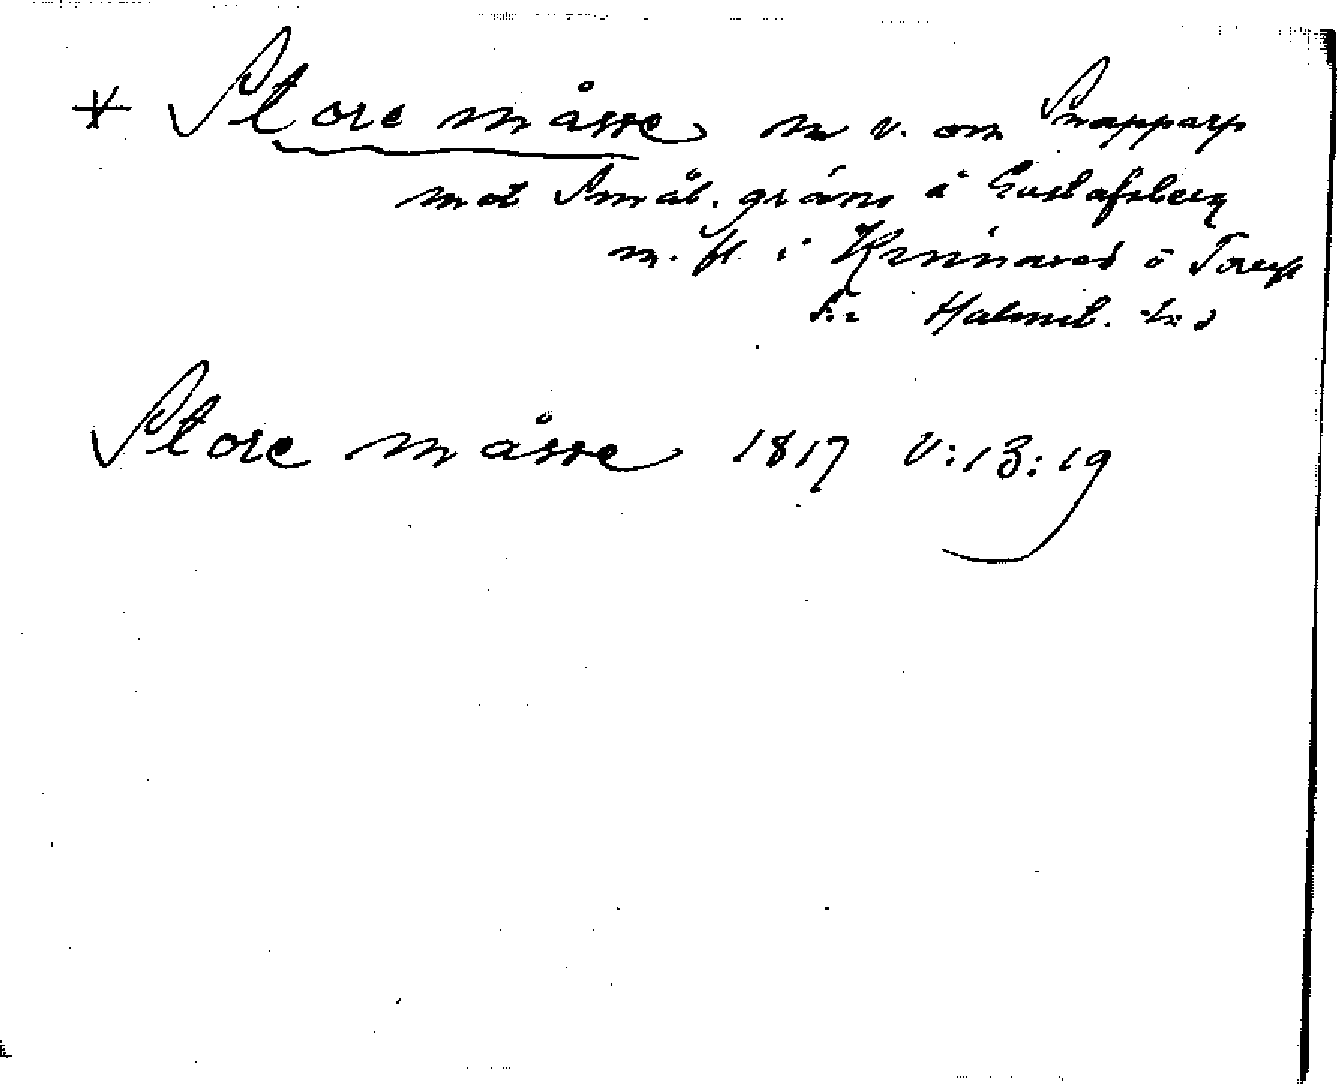 * Store måsse n v. om Snapparp
mot Smål. gräns å Gustafsberg
m. fl. i Kinnared o Torup
s:r Halmst. hd
Store måsse 1817 V:13:19